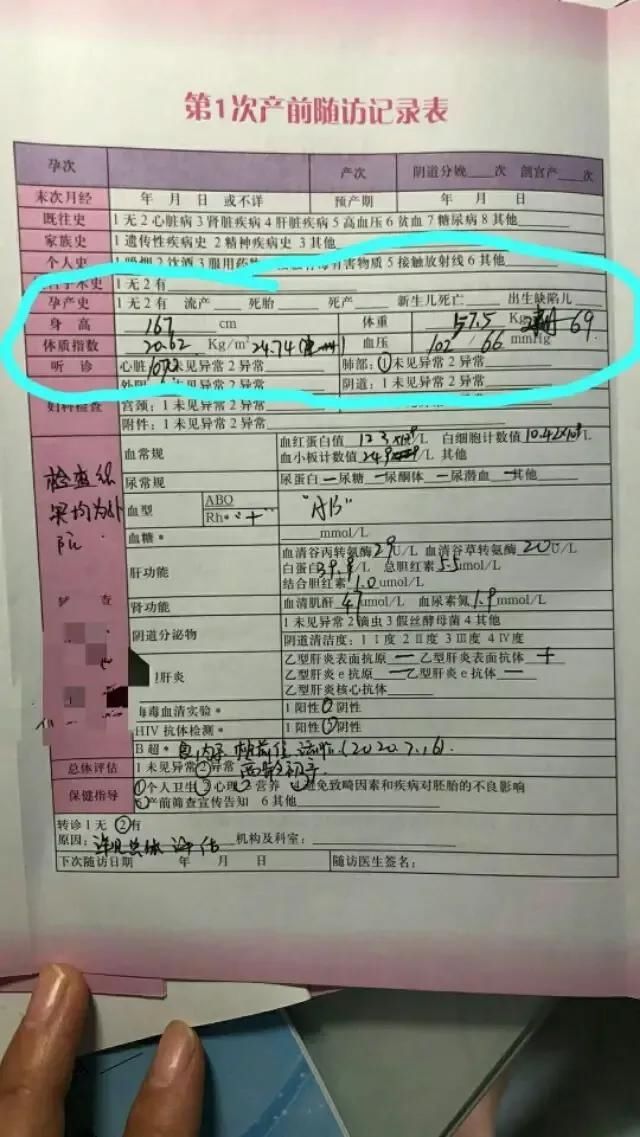 第1次产前随访记录表
孕次 产次 阴道分娩___次 剖宫产___次
末次月经 年 月 日 或不详 预产期 年 月 日
既往史 1无 2心脏病 3肾脏疾病 4肝脏疾病 5高血压 6贫血 7糖尿病 8其他
家族史 1遗传性疾病史 2精神疾病史 3其他
个人史 1吸烟 2饮酒 3服用药物 有害物质 5接触放射线 6其他
手术史 1无 2有
孕产史 1无 2有 流产___ 死胎___ 死产___ 新生儿死亡___ 出生缺陷儿___
身高 167 cm 体重 57.5 Kg 69
体质指数 20.62 Kg/m² 24.74 血压 102 / 66 mmHg
听诊 心脏 1未见异常 2异常 肺部:①未见异常 2异常
外阴 未见异常 2异常 阴道:1未见异常 2异常
妇科检查 宫颈:1未见异常 2异常
附件:1未见异常 2异常
检查结果均为外院
血常规 血红蛋白值 123 /L 白细胞计数值 10.42 /L
血小板计数值 249 /L 其他
尿常规 尿蛋白 — 尿糖 — 尿酮体 — 尿潜血 — 其他
血型 ABO "AB"
Rh* "+"
血糖* ___mmol/L
肝功能 血清谷丙转氨酶 29 U/L 血清谷草转氨酶 20 U/L
白蛋白 39.9 /L 总胆红素 5.5 umol/L
结合胆红素 1.0 umol/L
肾功能 血清肌酐 47 umol/L 血尿素氮 1.9 mmol/L
阴道分泌物 1未见异常 2滴虫 3假丝酵母菌 4其他
阴道清洁度:1Ⅰ度 2Ⅱ度 3Ⅲ度 4Ⅳ度
肝炎 乙型肝炎表面抗原 — 乙型肝炎表面抗体 +
乙型肝炎e抗原 — 乙型肝炎e抗体 —
乙型肝炎核心抗体
梅毒血清实验* 1阳性 ②阴性
HIV抗体检测* 1阳性 ②阴性
B超* 宫内 (2020.7.16)
总体评估 1未见异常 ②异常
保健指导 ①个人卫生 ②心理 ③营养 ④避免致畸因素和疾病对胚胎的不良影响
⑤产前筛查宣传告知 6其他
转诊 1无 ②有
原因: 详见总体评估 机构及科室:
下次随访日期 年 月 日 随访医生签名: